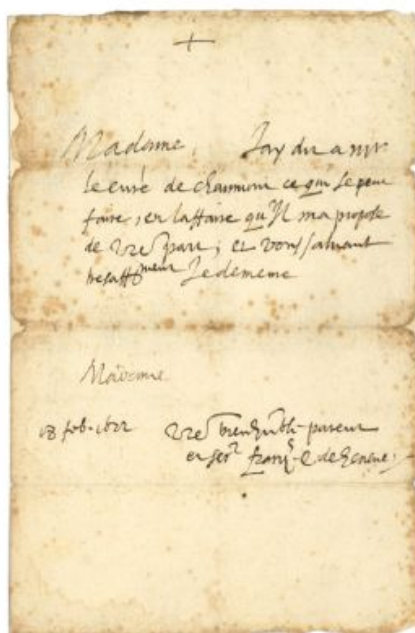 +
Madame Jay dit a mr
le curé de chaumont ce qui se peut
faire, en laffaire qu'Il ma propose
de vre part; et vous saluant
tresaff
Madame
18 feb. 1622 vre parent
et ser franç. E. de Geneve